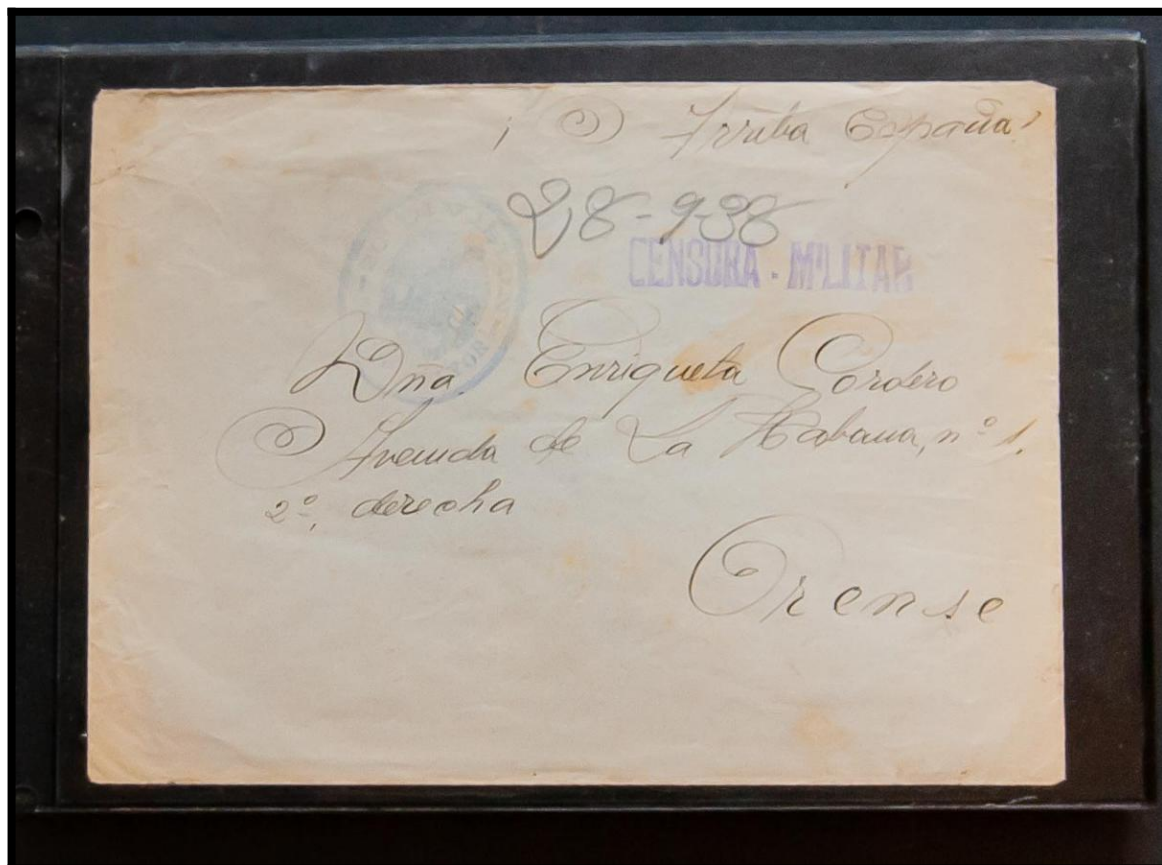 ¡Arriba España!
28-9-38
CENSURA - MILITAR
Dña Enriqueta Cordero
Avenida de La Habana, nº 1,
2º, derecha
Orense